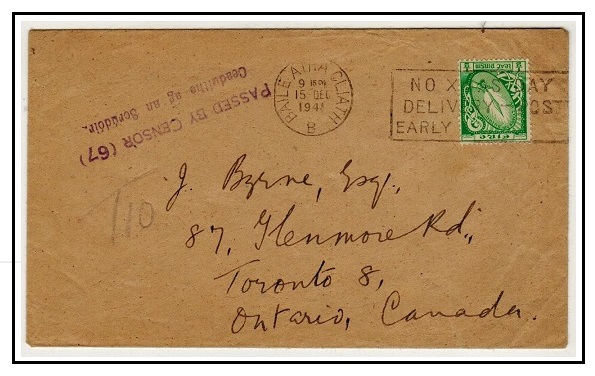 PASSED BY CENSOR (67)
Ceaduithe ag an Scrúdóir.
BAILE ÁTHA CLIATH
15 DEC
1941
B
NO X
DAY
EARLY
110
J. Byrne, Esq.,
87, Glenmore Rd.,
Toronto 8,
Ontario, Canada.